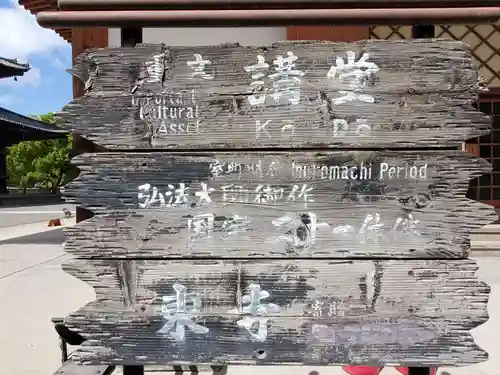 重文 講堂
Important
Cultural
Asset
Ko Do
室町時代 Muromachi Period
弘法大師御作
国宝 計一件
東寺
寄贈